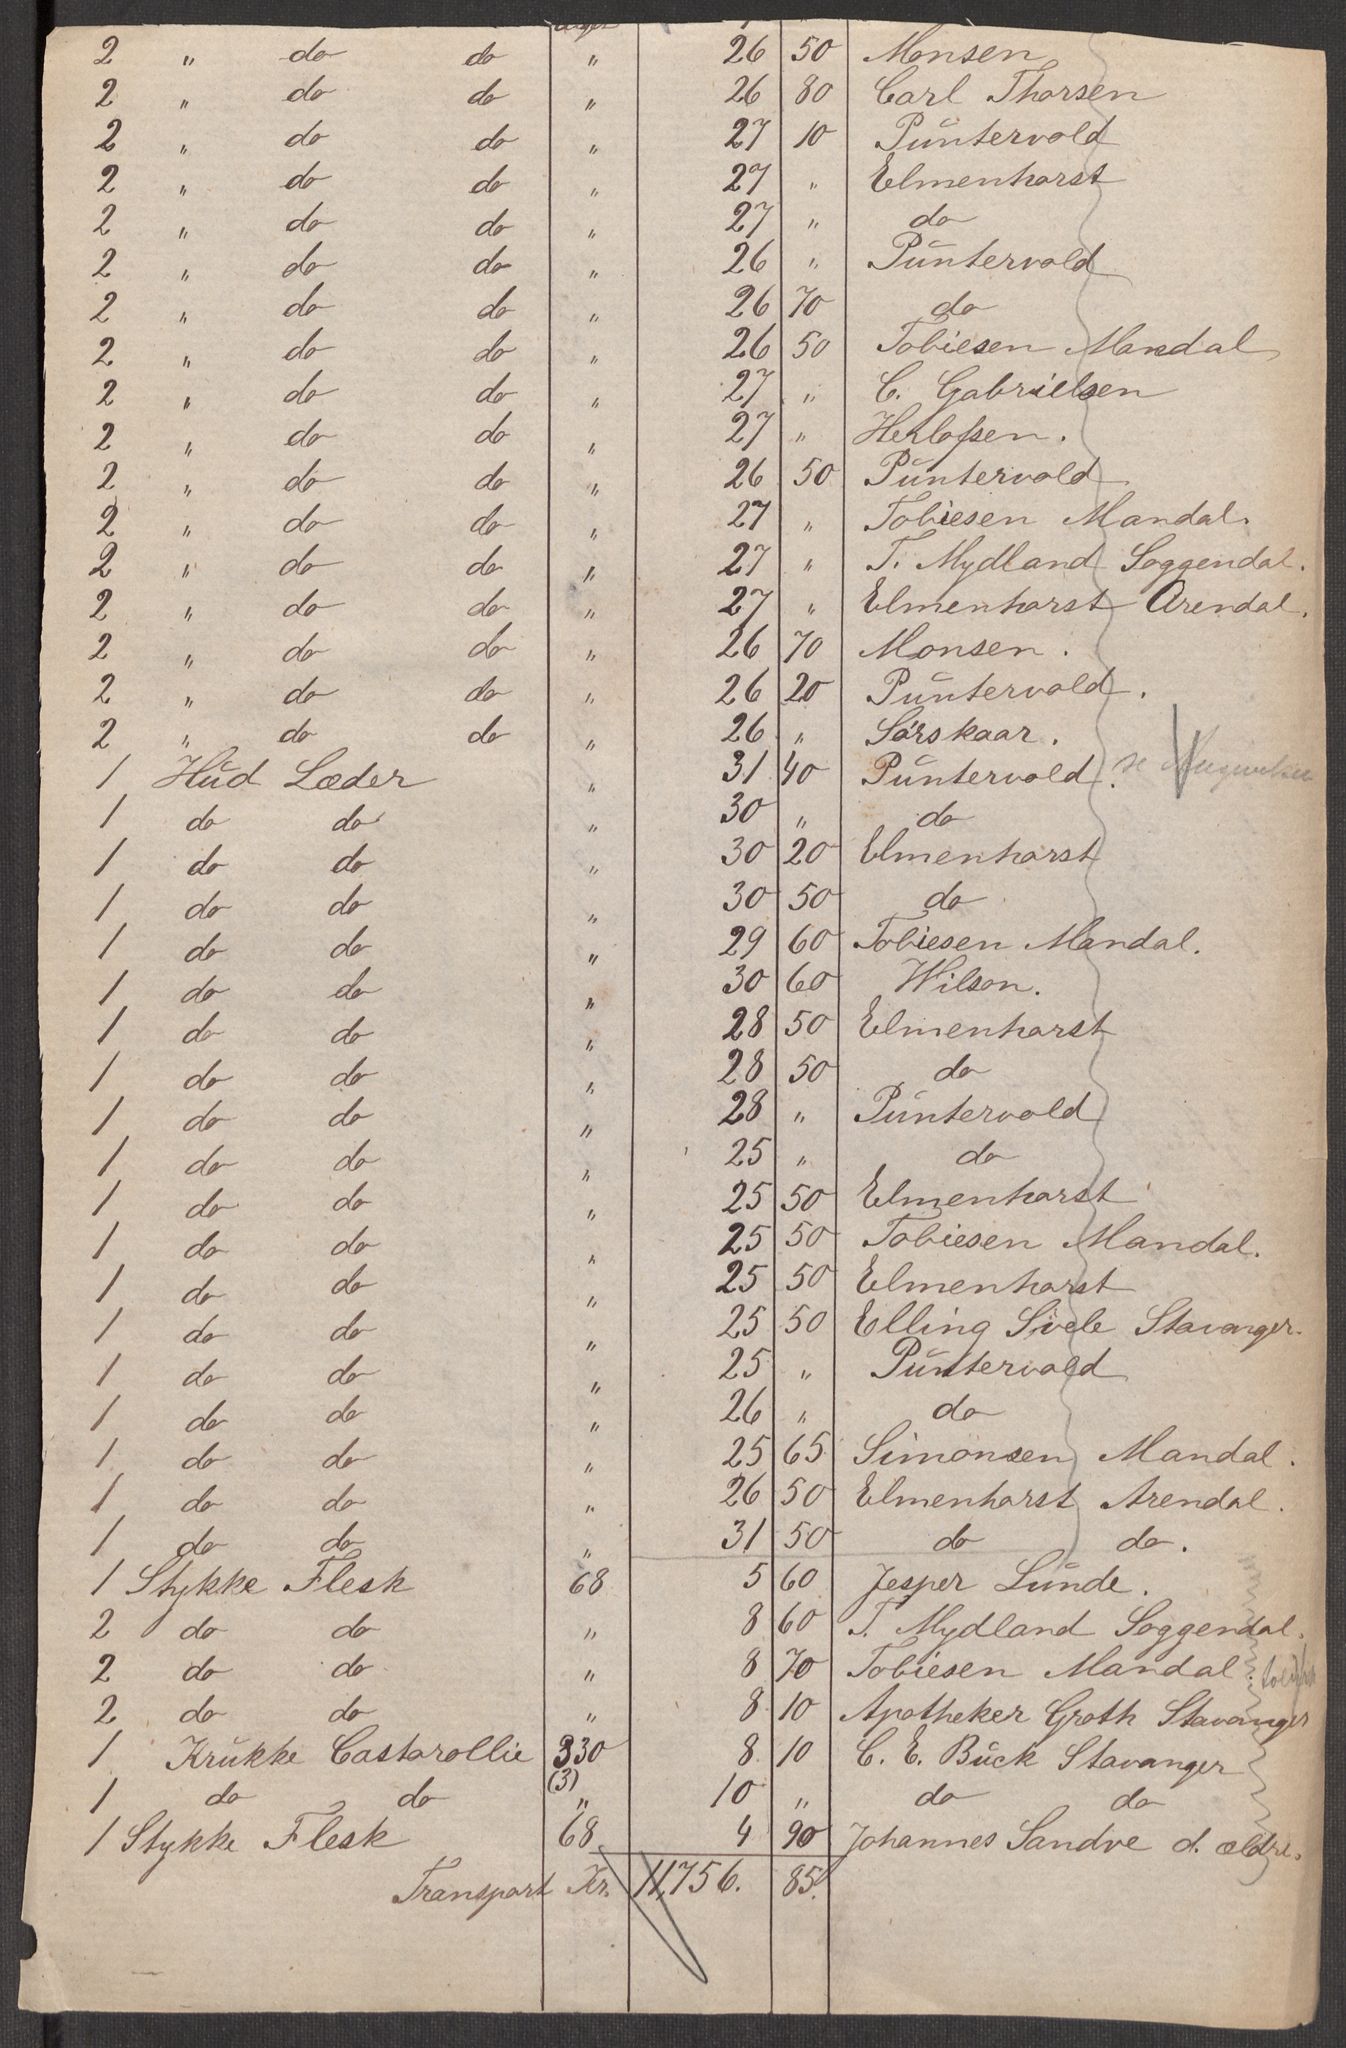 2 " do do " 26 50 Monsen
2 " do do " 26 80 Carl Thorsen
2 " do do " 27 10 Püntervold
2 " do do " 27 " Elmenhorst
2 " do do " 27 " do
2 " do do " 26 " Püntervold
2 " do do " 26 70 do
2 " do do " 26 50 Tobiesen Mandal
2 " do do " 27 " C. Gabrielsen
2 " do do " 27 " Herlofsen.
2 " do do " 26 50 Püntervold
2 " do do " 27 " Tobiesen Mandal.
2 " do do " 27 " T. Mydland Soggendal.
2 " do do " 27 " Elmenhorst Arendal.
2 " do do " 26 70 Monsen.
2 " do do " 26 20 Püntervold.
2 " do do " 26 " Sörskaar.
1 Hüd Læder " 31 40 Püntervold.
1 do do " 30 " do
1 do do " 30 20 Elmenhorst
1 do do " 30 50 do
1 do do " 29 60 Tobiesen Mandal.
1 do do " 30 60 Wilson.
1 do do " 28 50 Elmenhorst
1 do do " 28 50 do
1 do do " 28 " Püntervold
1 do do " 25 " do
1 do do " 25 50 Elmenhorst
1 do do " 25 50 Tobiesen Mandal.
1 do do " 25 50 Elmenhorst
1 do do " 25 50 Elling Sivele Stavanger.
1 do do " 25 " Püntervold
1 do do " 26 " do
1 do do " 25 65 Simonsen Mandal.
1 do do " 26 50 Elmenhorst Arendal.
1 do do " 31 50 do do.
1 Stykke Flesk 68 5 60 Jesper Lünde.
2 do do " 8 60 T. Mydland Soggendal.
2 do do " 8 70 Tobiesen Mandal.
2 do do " 8 10 Apotheker Groth Stavanger
1 Krükke Castorollie 330 8 10 C. E. Bück Stavanger
1 do do (3) " 10 " do do
1 Stykke Flesk 68 4 90 Johannes Sandve d. ældre.
Transport Kr. 11,756. 85.